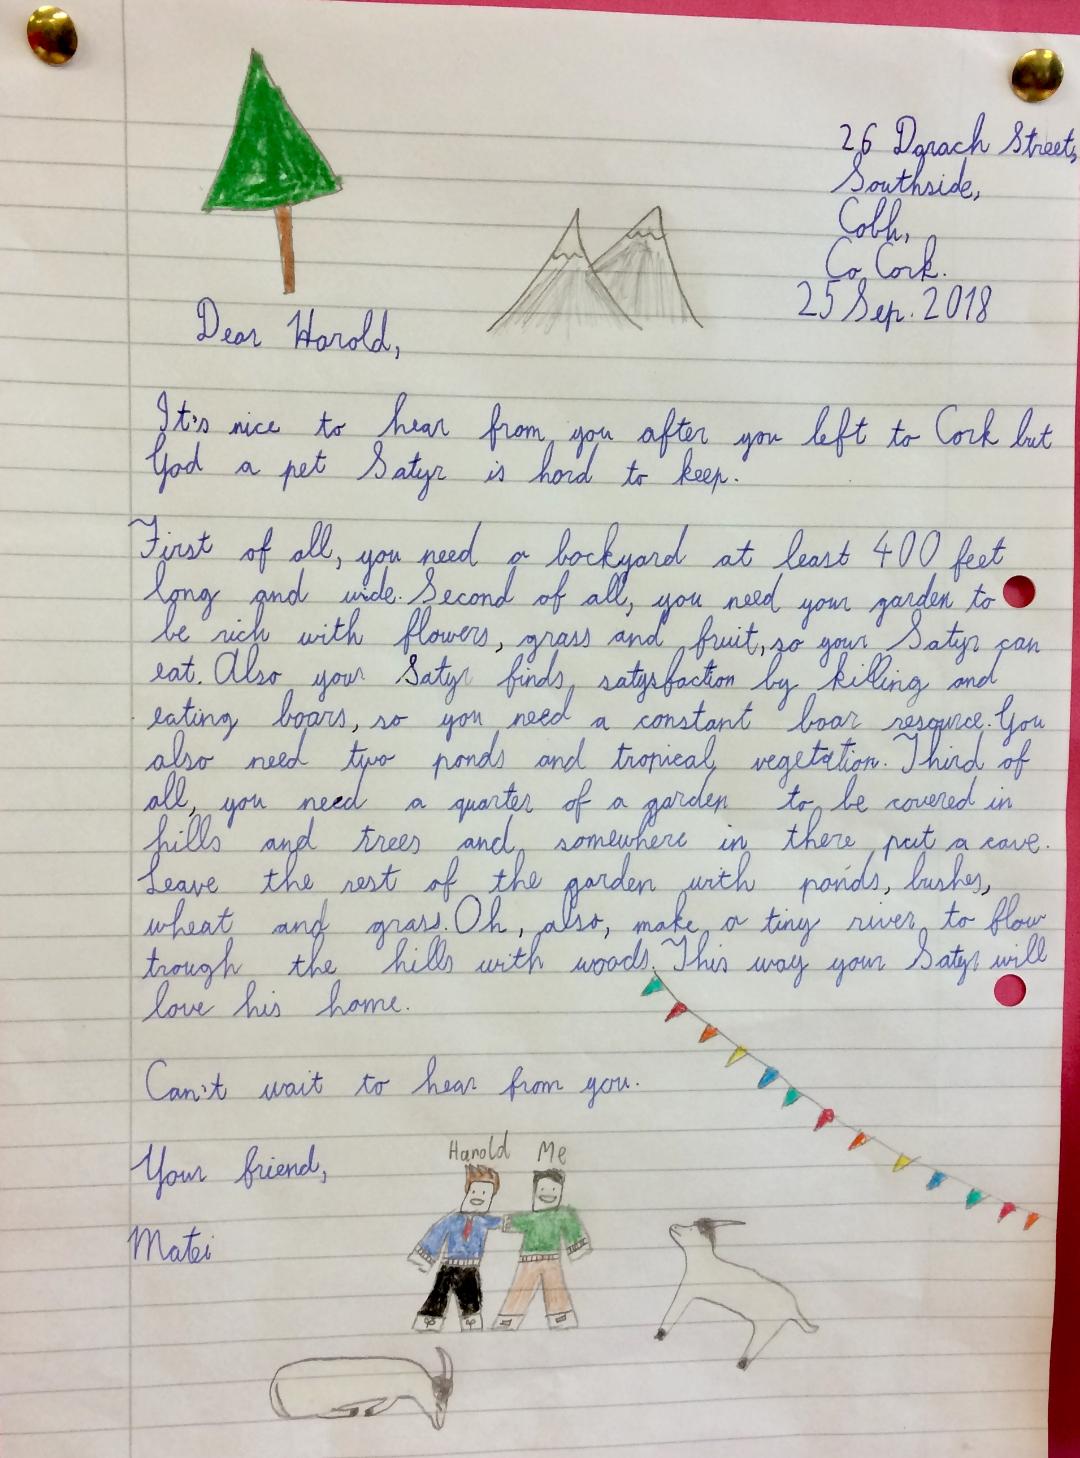 26 Darach Street,
Southside,
Cobh,
Co Cork.
25 Sep. 2018
Dear Harold,
It's nice to hear from you after you left to Cork but
God a pet Satyr is hard to keep.
First of all, you need a backyard at least 400 feet
long and wide. Second of all, you need your garden to
be rich with flowers, grass and fruit, so your Satyr can
eat. Also your Satyr finds satysfaction by killing and
eating boars, so you need a constant boar resource. You
also need two ponds and tropical vegetation. Third of
all, you need a quarter of a garden to be covered in
hills and trees and somewhere in there put a cave.
Leave the rest of the garden with ponds, bushes,
wheat and grass. Oh, also, make a tiny river to flow
trough the hills with woods. This way your Satyr will
love his home.
Can't wait to hear from you.
Your friend,
Harold Me
Matei